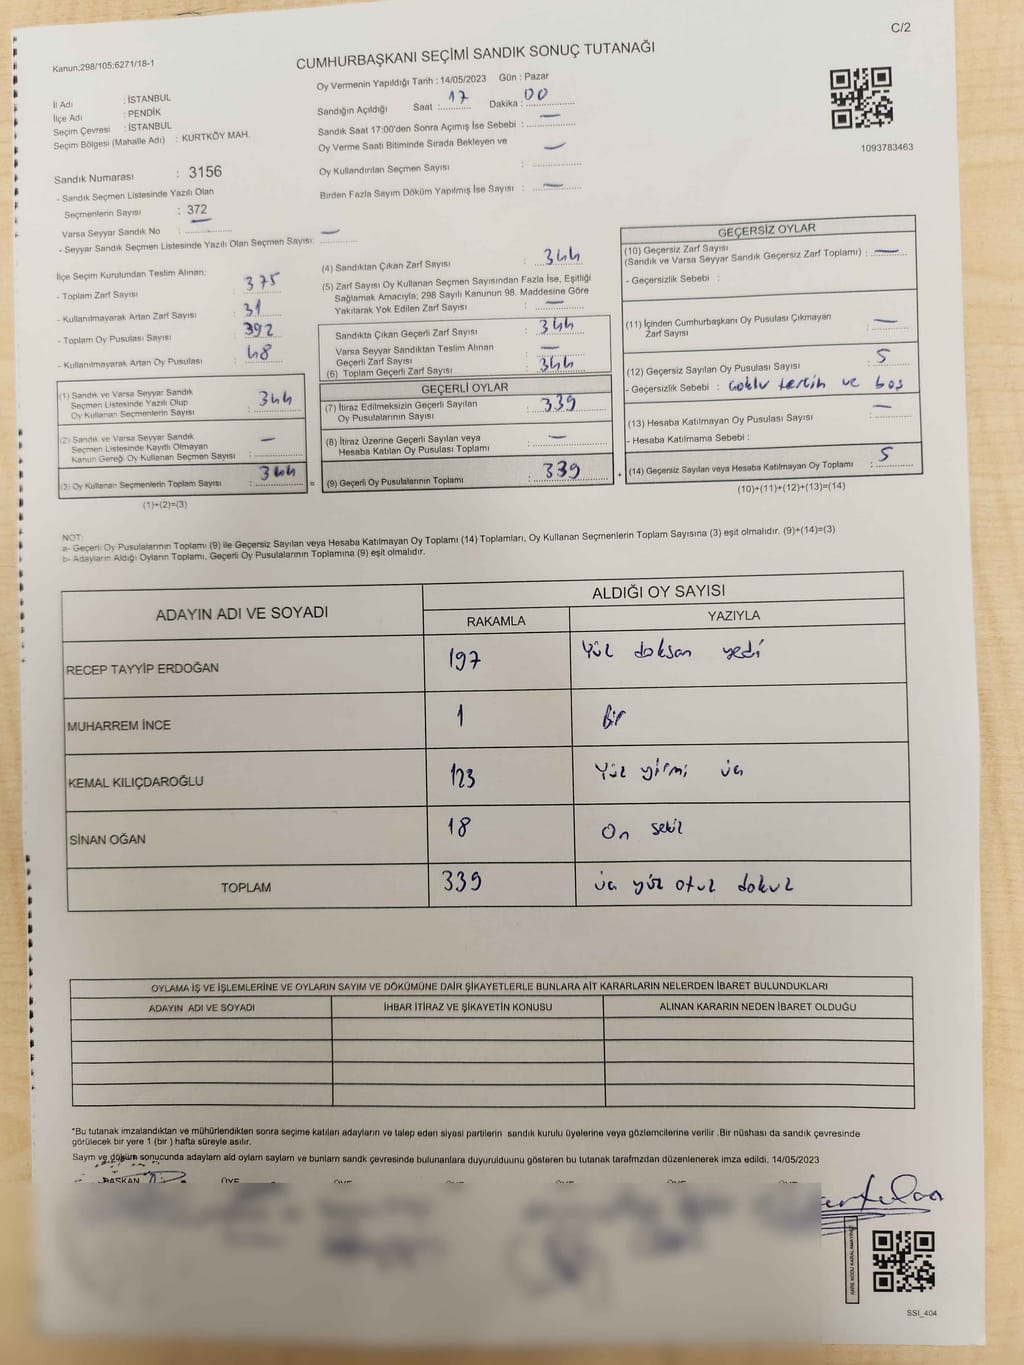 C/2
Kanun;298/105;6271/18-1
CUMHURBAŞKANI SEÇİMİ SANDIK SONUÇ TUTANAĞI
İl Adı : İSTANBUL
İlçe Adı : PENDİK
Seçim Çevresi : İSTANBUL
Seçim Bölgesi (Mahalle Adı) : KURTKÖY MAH.
Sandık Numarası : 3156
- Sandık Seçmen Listesinde Yazılı Olan
Seçmenlerin Sayısı : 372
Varsa Seyyar Sandık No : —
- Seyyar Sandık Seçmen Listesinde Yazılı Olan Seçmen Sayısı: —
Oy Vermenin Yapıldığı Tarih : 14/05/2023 Gün : Pazar
Sandığın Açıldığı Saat : 17 Dakika : 00
Sandık Saat 17:00'den Sonra Açımış İse Sebebi : —
Oy Verme Saati Bitiminde Sırada Bekleyen ve —
Oy Kullandırılan Seçmen Sayısı :
Birden Fazla Sayım Döküm Yapılmış İse Sayısı : —
1093783463
İlçe Seçim Kurulundan Teslim Alınan;
- Toplam Zarf Sayısı : 375
- Kullanılmayarak Artan Zarf Sayısı : 31
- Toplam Oy Pusulası Sayısı : 392
- Kullanılmayarak Artan Oy Pusulası : 48
(1) Sandık ve Varsa Seyyar Sandık
Seçmen Listesinde Yazılı Olup
Oy Kullanan Seçmenlerin Sayısı : 344
(2) Sandık ve Varsa Seyyar Sandık
Seçmen Listesinde Kayıtlı Olmayan
Kanun Gereği Oy Kullanan Seçmen Sayısı : —
(3) Oy Kullanan Seçmenlerin Toplam Sayısı : 344
(1)+(2)=(3)
(4) Sandıktan Çıkan Zarf Sayısı : 344
(5) Zarf Sayısı Oy Kullanan Seçmen Sayısından Fazla İse, Eşitliği
Sağlamak Amacıyla; 298 Sayılı Kanunun 98. Maddesine Göre
Yakılarak Yok Edilen Zarf Sayısı : —
Sandıkta Çıkan Geçerli Zarf Sayısı : 344
Varsa Seyyar Sandıktan Teslim Alınan
Geçerli Zarf Sayısı : —
(6) Toplam Geçerli Zarf Sayısı : 344
GEÇERLİ OYLAR
(7) İtiraz Edilmeksizin Geçerli Sayılan
Oy Pusulalarının Sayısı : 339
(8) İtiraz Üzerine Geçerli Sayılan veya
Hesaba Katılan Oy Pusulası Toplamı : —
(9) Geçerli Oy Pusulalarının Toplamı : 339
GEÇERSİZ OYLAR
(10) Geçersiz Zarf Sayısı
(Sandık ve Varsa Seyyar Sandık Geçersiz Zarf Toplamı) : —
- Geçersizlik Sebebi :
(11) İçinden Cumhurbaşkanı Oy Pusulası Çıkmayan
Zarf Sayısı : —
(12) Geçersiz Sayılan Oy Pusulası Sayısı : 5
- Geçersizlik Sebebi : Çoklu tercih ve boş
(13) Hesaba Katılmayan Oy Pusulası Sayısı : —
- Hesaba Katılmama Sebebi :
(14) Geçersiz Sayılan veya Hesaba Katılmayan Oy Toplamı : 5
(10)+(11)+(12)+(13)=(14)
NOT:
a- Geçerli Oy Pusulalarının Toplamı (9) ile Geçersiz Sayılan veya Hesaba Katılmayan Oy Toplamı (14) Toplamları, Oy Kullanan Seçmenlerin Toplam Sayısına (3) eşit olmalıdır. (9)+(14)=(3)
b- Adayların Aldığı Oyların Toplamı, Geçerli Oy Pusulalarının Toplamına (9) eşit olmalıdır.
ADAYIN ADI VE SOYADI
ALDIĞI OY SAYISI
RAKAMLA YAZIYLA
RECEP TAYYİP ERDOĞAN 197 Yüz doksan yedi
MUHARREM İNCE 1 Bir
KEMAL KILIÇDAROĞLU 123 Yüz yirmi üç
SİNAN OĞAN 18 On sekiz
TOPLAM 339 üç yüz otuz dokuz
OYLAMA İŞ VE İŞLEMLERİNE VE OYLARIN SAYIM VE DÖKÜMÜNE DAİR ŞİKAYETLERLE BUNLARA AİT KARARLARIN NELERDEN İBARET BULUNDUKLARI
ADAYIN ADI VE SOYADI İHBAR İTİRAZ VE ŞİKAYETİN KONUSU ALINAN KARARIN NEDEN İBARET OLDUĞU
*Bu tutanak imzalandıktan ve mühürlendikten sonra seçime katılan adayların ve talep eden siyasi partilerin sandık kurulu üyelerine veya gözlemcilerine verilir .Bir nüshası da sandık çevresinde
görülecek bir yere 1 (bir ) hafta süreyle asılır.
Saym ve döküm sonucunda adaylarn ald oylarn saylarn ve bunlarn sandk çevresinde bulunanlara duyurulduunu gösteren bu tutanak tarafmzdan düzenlenerek imza edildi. 14/05/2023
BAŞKAN ÜYE ÜYE ÜYE ÜYE ÜYE
SSI_404